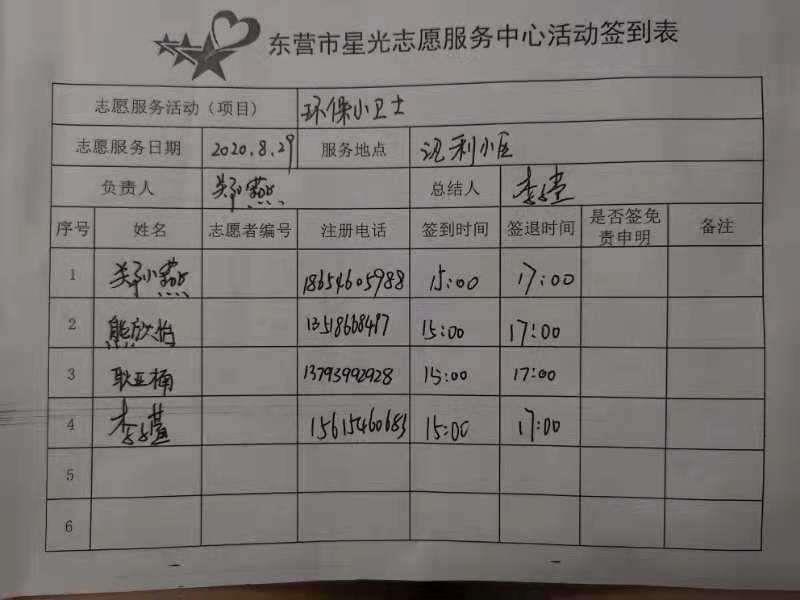 东营市星光志愿服务中心活动签到表
志愿服务活动（项目） 环保小卫士
志愿服务日期 2020.8.29 服务地点 况利小区
负责人 郑小燕 总结人 李莹
序号 姓名 志愿者编号 注册电话 签到时间 签退时间 是否签免责申明 备注
1 郑小燕 18654605988 15:00 17:00
2 熊欣怡 15:00 17:00
3 耿亚楠 13793992928 15:00 17:00
4 李莹 15615460683 15:00 17:00
5
6